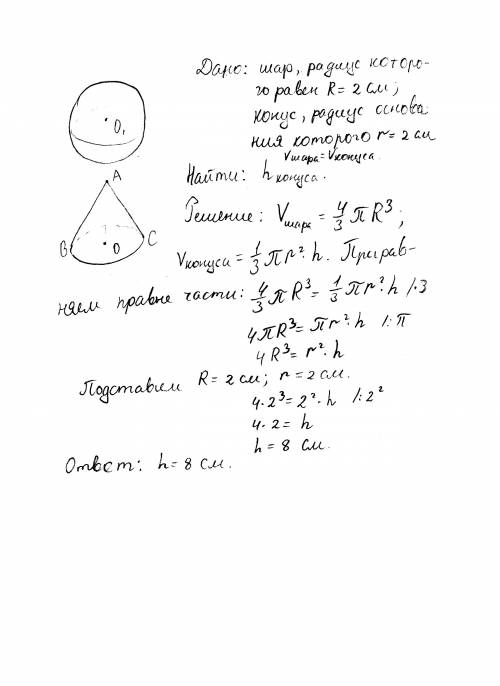 Дано: шар, радиус которо-
го равен R = 2 см;
конус, радиус основа
ния которого r = 2 см
Vшара = Vконуса.
Найти: h конуса.
Решение: Vшара = 4/3 πR³;
Vконуса = 1/3 πr²·h. Прирав-
няем правые части: 4/3 πR³ = 1/3 πr²·h /·3
4πR³ = πr²·h /:π
4R³ = r²·h
Подставим R = 2 см; r = 2 см.
4·2³ = 2²·h /:2²
4·2 = h
h = 8 см.
Ответ: h = 8 см.
O₁
A
B
O
C